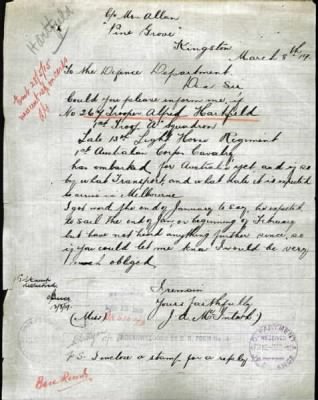 Hartfield
C/o Mrs Allan
Pine Grove
Kingston
March 8th 19
To the Defence Department
Dear Sir
Could you please inform me, if
No 264 Trooper Alfred Hartfield
1st Troop A Squadron
Late 13th Light Horse Regiment
1st Australian Corps Cavalry
has embarked for Australia yet and if so
by what Transport, and what date it is expected
to arrive in Melbourne
I got word the end of January to say he expected
to sail the end of Jan or beginning of February
but have not heard anything further since, so
if you could let me know I would be very
much obliged.
I remain
Yours faithfully
(Miss) J. A. McIntosh
PS I enclose a stamp for a reply
Stamp
Base Records